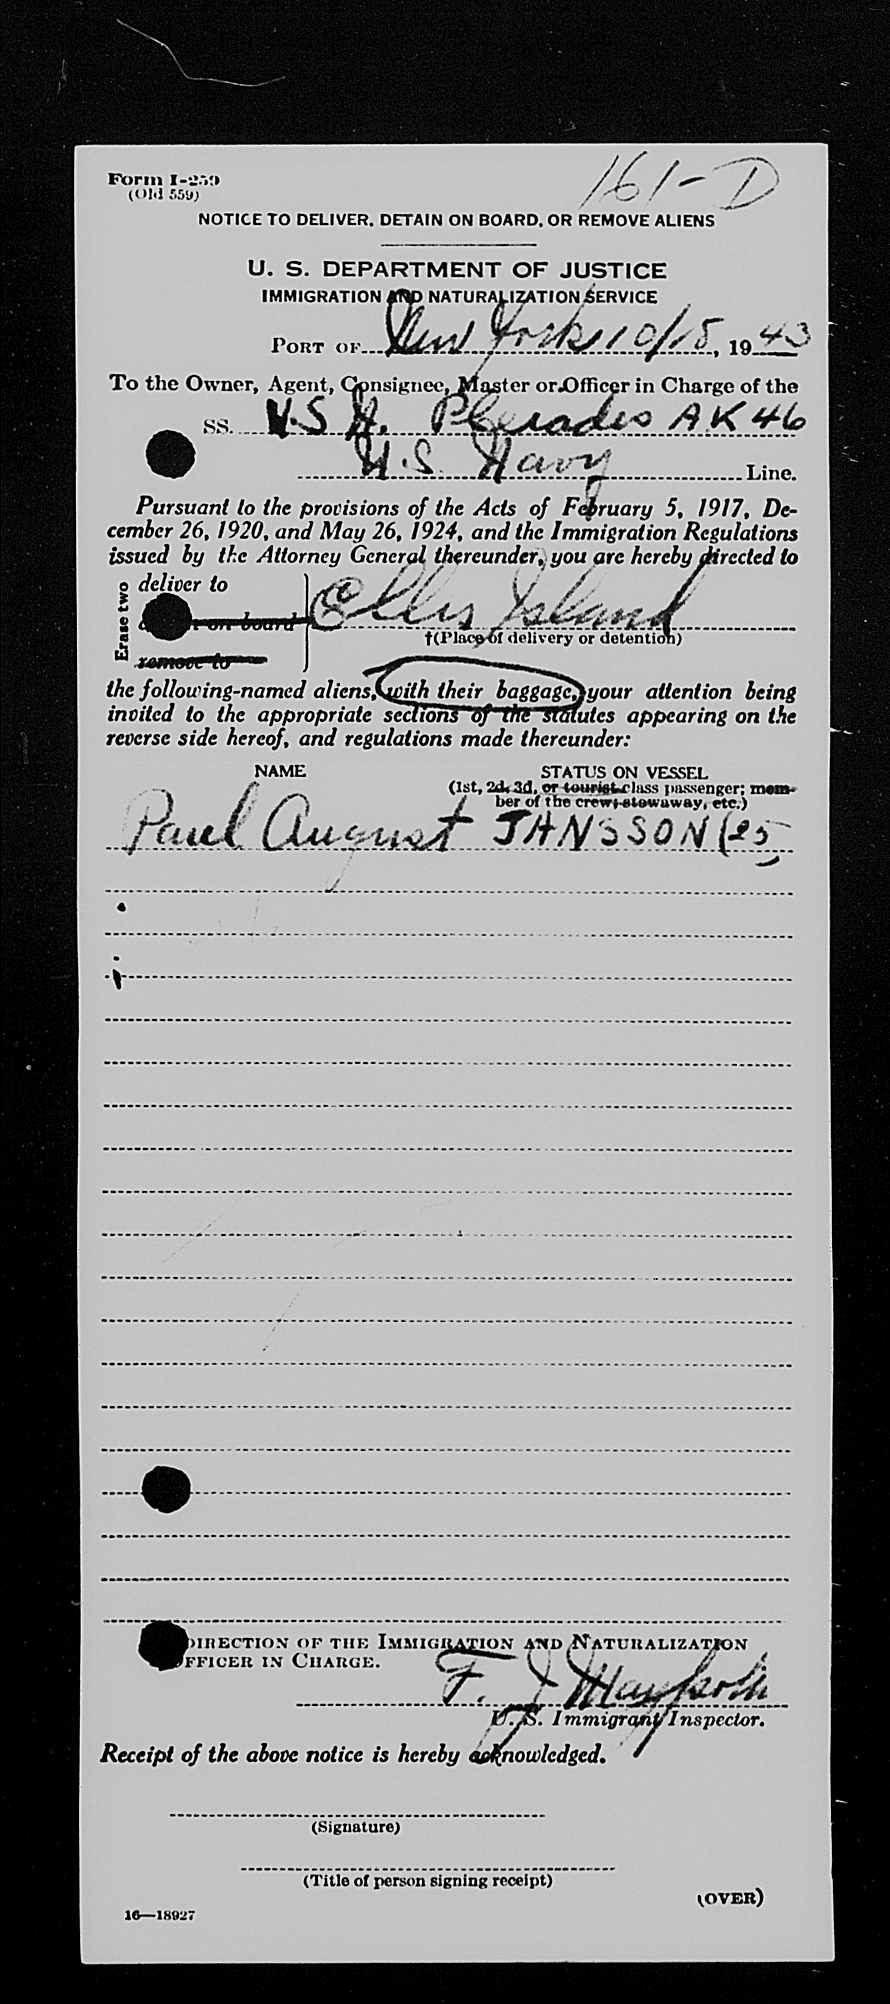 161-D
Form I-259
(Old 559)
NOTICE TO DELIVER, DETAIN ON BOARD, OR REMOVE ALIENS
U. S. DEPARTMENT OF JUSTICE
IMMIGRATION AND NATURALIZATION SERVICE
PORT OF New York 10/15, 1943
To the Owner, Agent, Consignee, Master or Officer in Charge of the
SS. U.S.A. Pleiades AK 46
U.S. Navy Line.
Pursuant to the provisions of the Acts of February 5, 1917, De-
cember 26, 1920, and May 26, 1924, and the Immigration Regulations
issued by the Attorney General thereunder, you are hereby directed to
Erase two
deliver to
on board
remove to
Ellis Island
†(Place of delivery or detention)
the following-named aliens, with their baggage, your attention being
invited to the appropriate sections of the statutes appearing on the
reverse side hereof, and regulations made thereunder:
NAME STATUS ON VESSEL
(1st, 2d, 3d, or tourist class passenger; mem-
ber of the crew, stowaway, etc.)
Paul August JANSSON (25
DIRECTION OF THE IMMIGRATION AND NATURALIZATION
OFFICER IN CHARGE.
F. J.
U. S. Immigrant Inspector.
Receipt of the above notice is hereby acknowledged.
(Signature)
(Title of person signing receipt)
(OVER)
16—18927